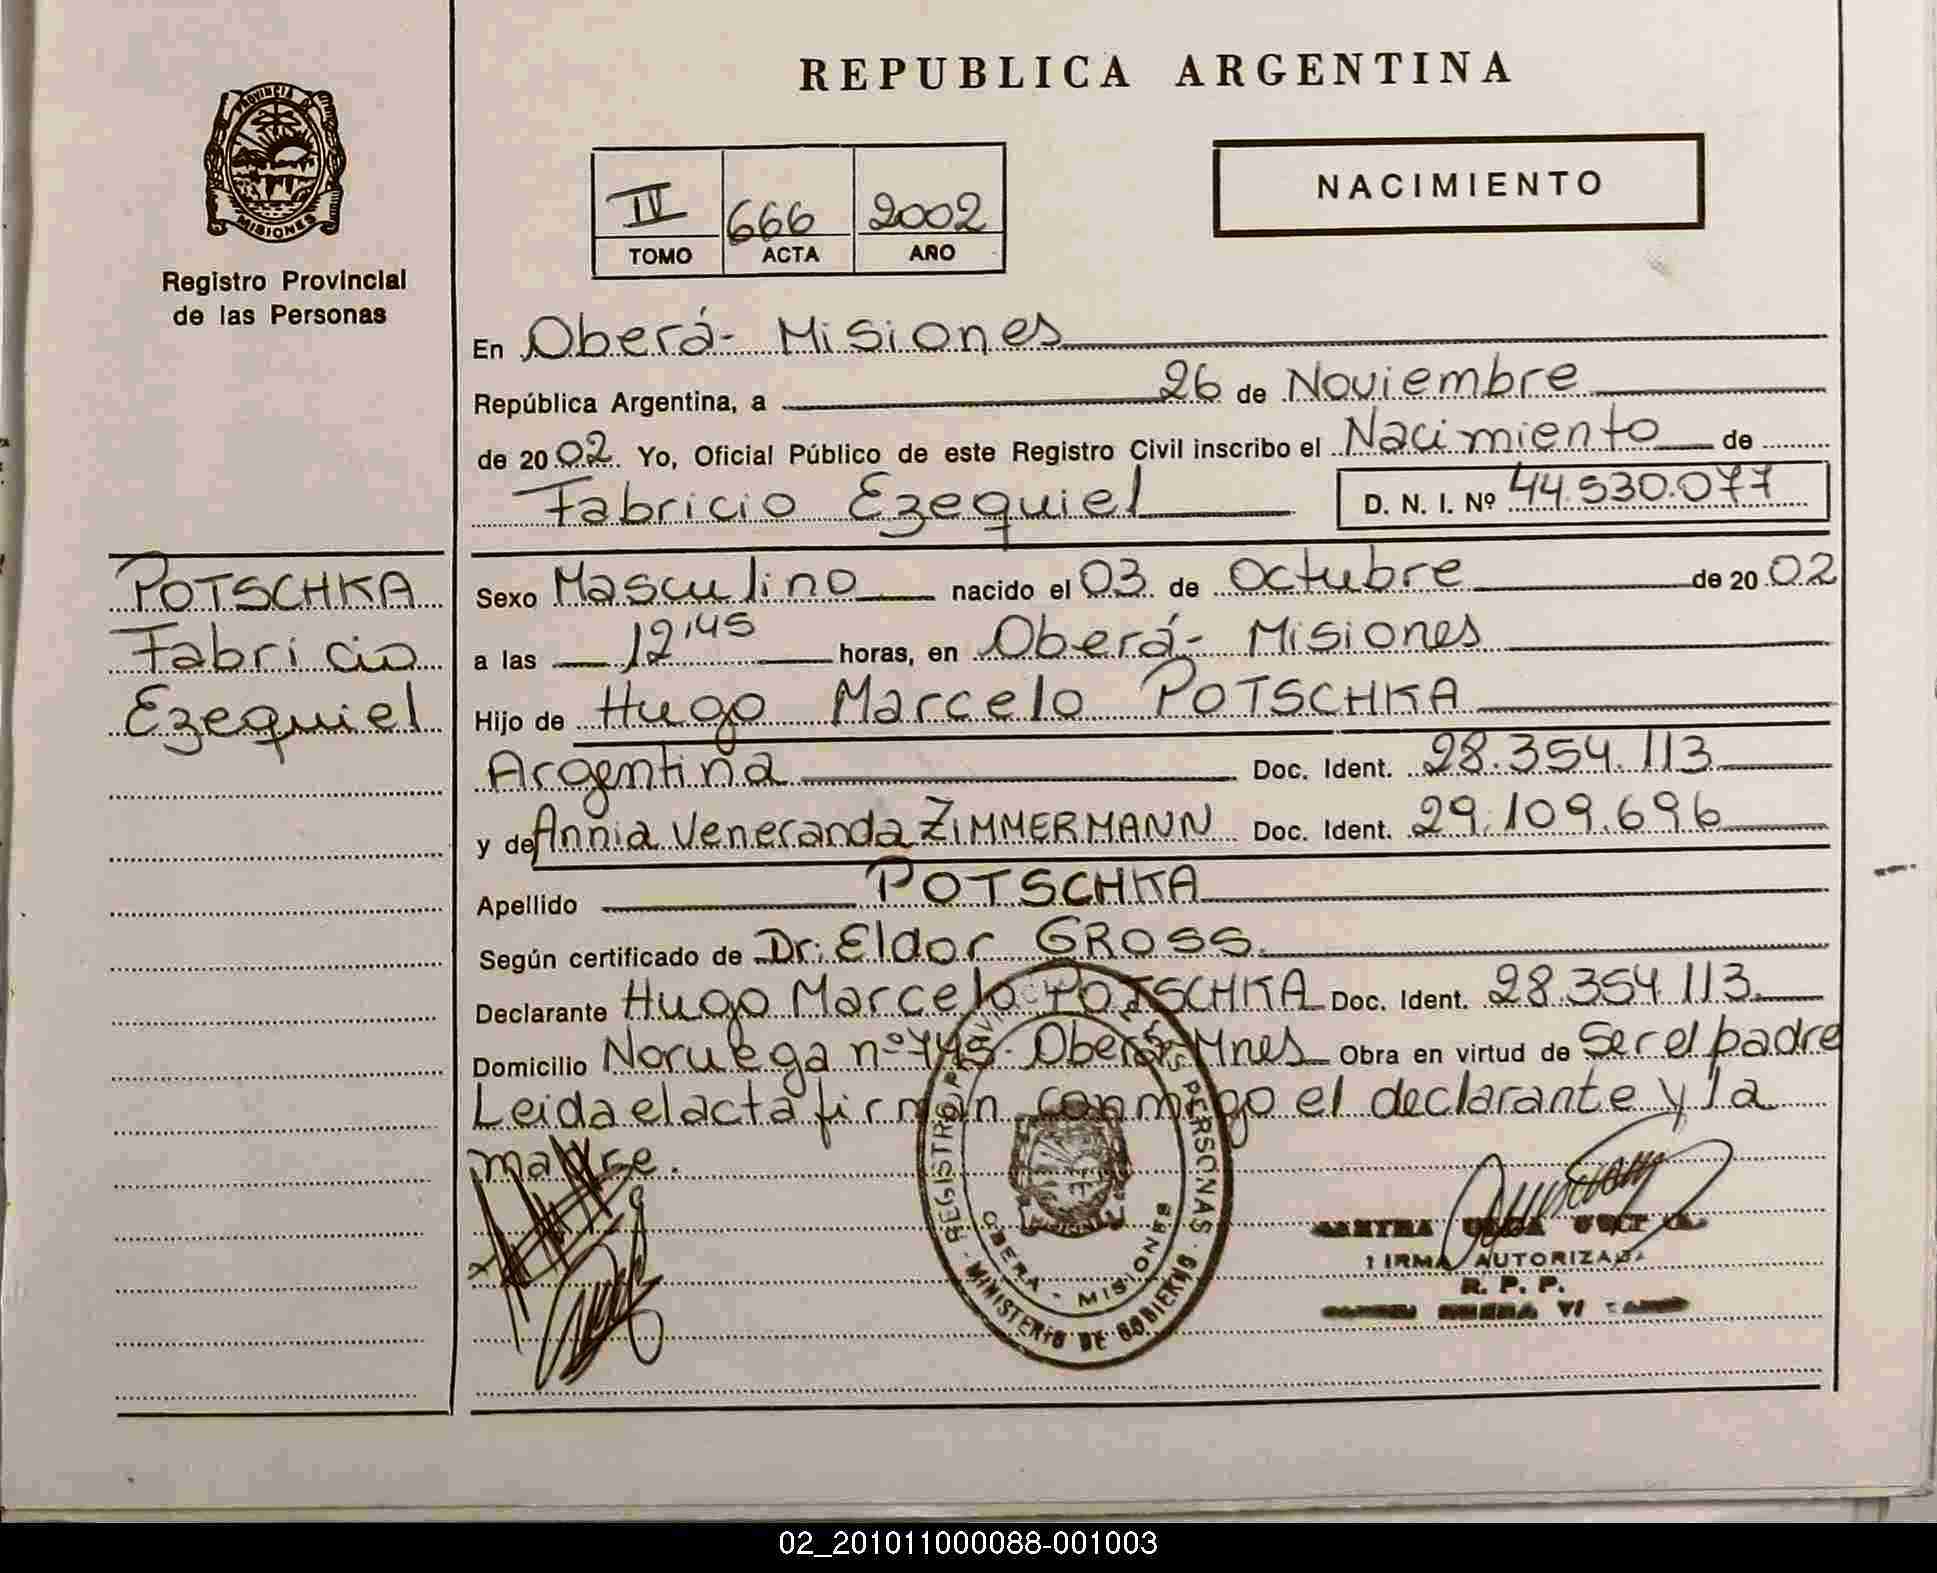 REPUBLICA ARGENTINA
PROVINCIA DE
MISIONES
Registro Provincial
de las Personas
IV 666 2002
TOMO ACTA AÑO
NACIMIENTO
En Oberá- Misiones
República Argentina, a 26 de Noviembre
de 2002 Yo, Oficial Público de este Registro Civil inscribo el Nacimiento de
Fabricio Ezequiel D. N. I. Nº 44.530.077
POTSCHKA
Fabricio
Ezequiel
Sexo Masculino nacido el 03 de Octubre de 2002
a las 12'45 horas, en Oberá- Misiones
Hijo de Hugo Marcelo POTSCHKA
Argentina Doc. Ident. 28.354.113
y de Annia Veneranda ZIMMERMANN Doc. Ident. 29.109.696
Apellido POTSCHKA
Según certificado de Dr. Eldor GROSS.
Declarante Hugo Marcelo POTSCHKA Doc. Ident. 28.354.113
Domicilio Noruega nº 745- Oberá- Mnes Obra en virtud de Ser el padre
Leida el acta firman conmigo el declarante y la
madre.
REGISTRO PERSONAS
OBERA - MISIONES
MINISTERIO DE GOBIERNO
FIRMA AUTORIZADA
R. P. P.
02_201011000088-001003